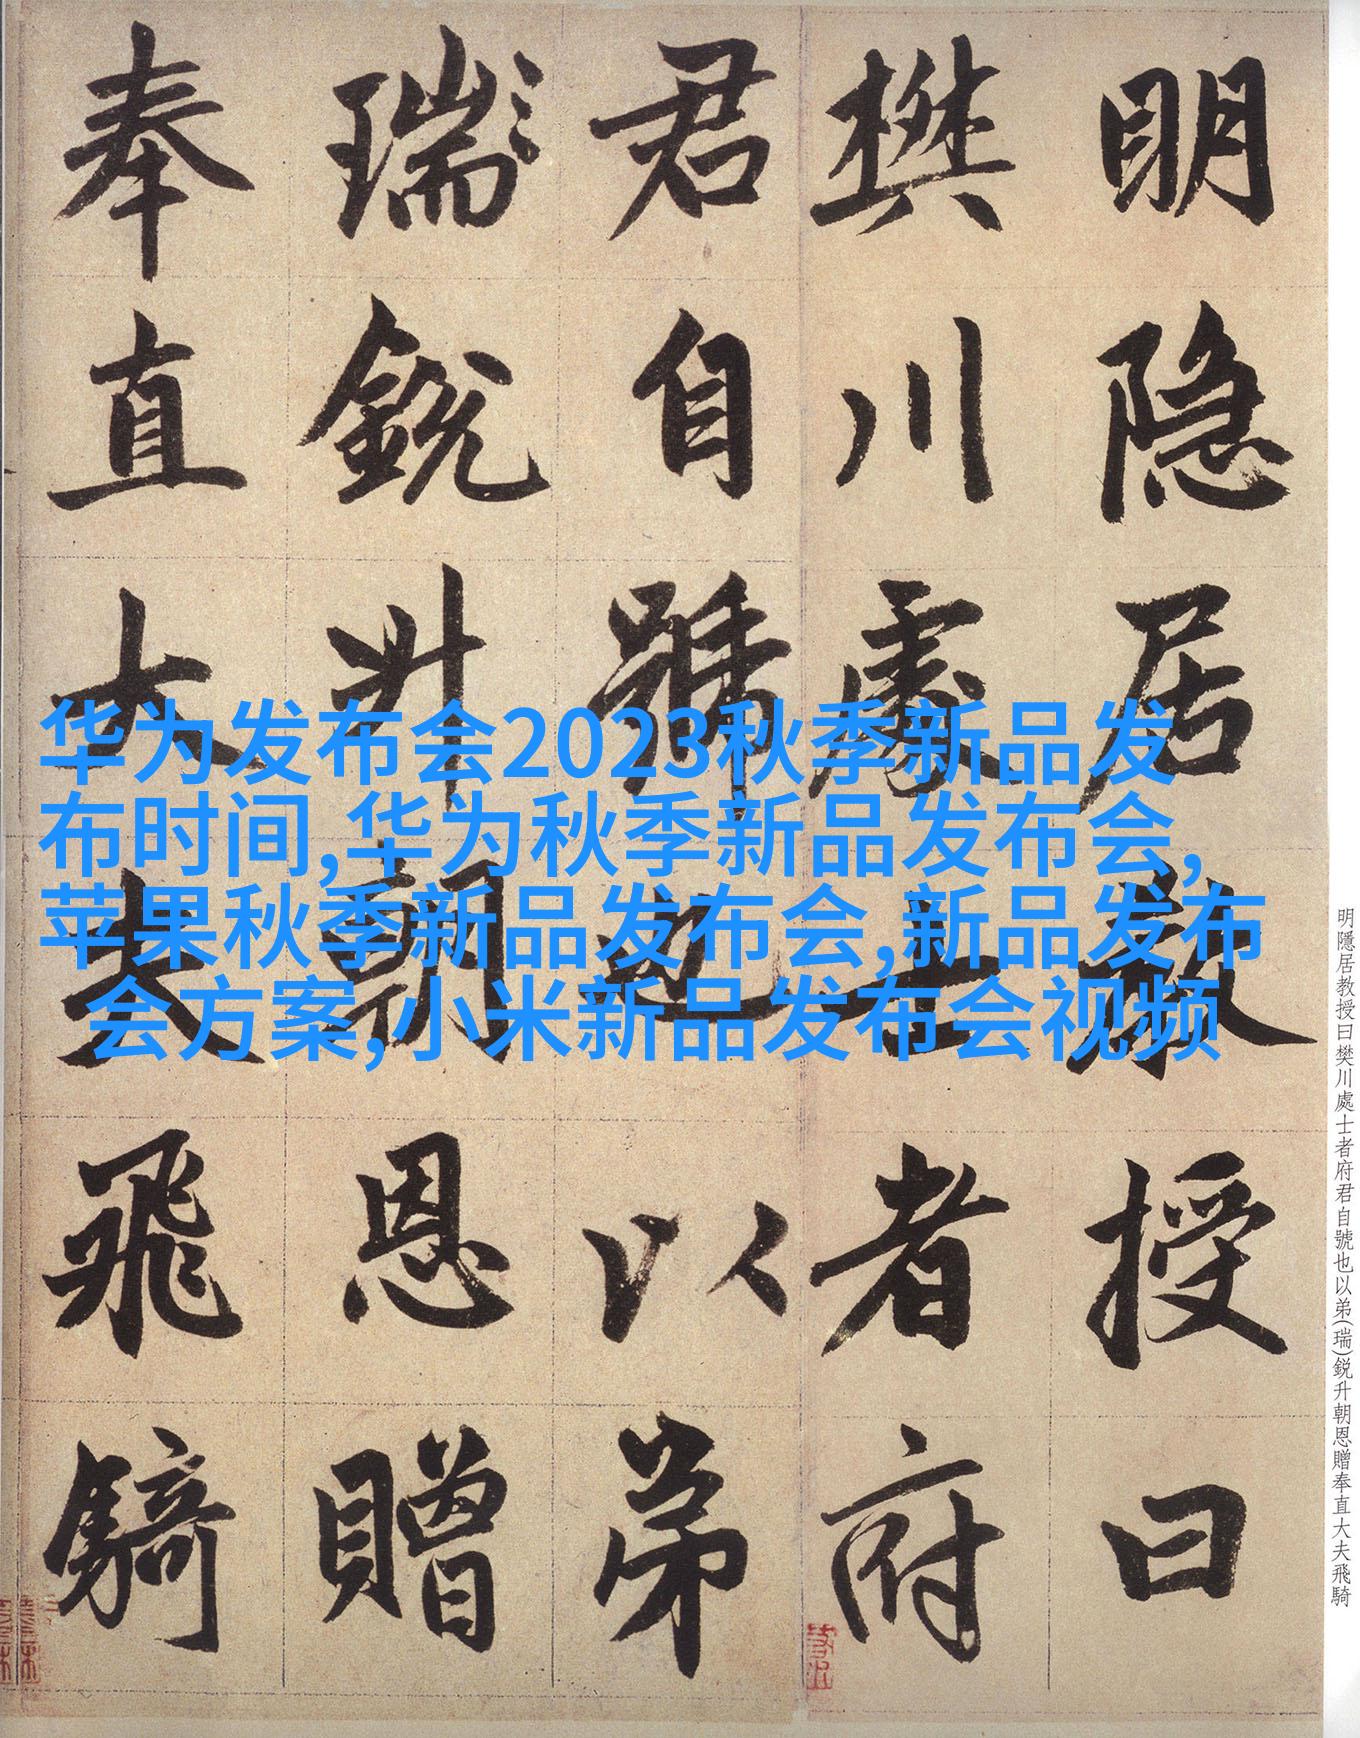 明隱居教授曰
樊川處士者府
君自號也以弟
瑞銳升朝恩贈
奉直大夫飛騎
华为发布会2023秋季新品发
布时间,华为秋季新品发布会,
苹果秋季新品发布会,新品发布
会方案,小米新品发布会视频
明隱居教授曰樊川處士者府君自號也以弟(瑞)銳升朝恩贈奉直大夫飛騎